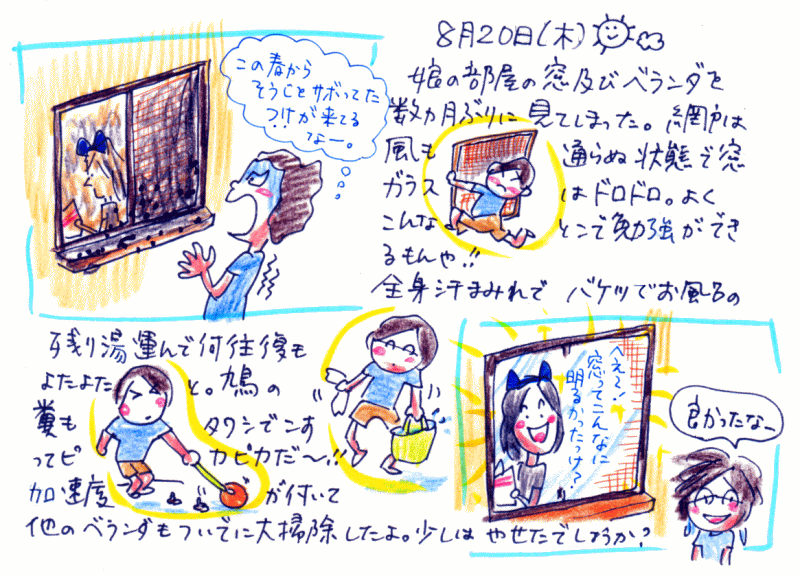 8月20日(木)
この春から
そうじをサボってた
つけが来てる
なー。
娘の部屋の窓及びベランダを
数ヵ月ぶりに見てしまった。網戸は
風も通らぬ状態で窓
ガラスはドロドロ。よく
こんなとこで勉強ができ
るもんや!!
全身汗まみれで バケツでお風呂の
残り湯運んで何往復も
よたよたと。鳩の
糞もタワシでこす
ってピカピカだ〜!!
加速度が付いて
他のベランダもついでに大掃除したよ。少しは やせたでしょうか?
へえ〜!
窓ってこんなに
明るかったっけ?
良かったなー